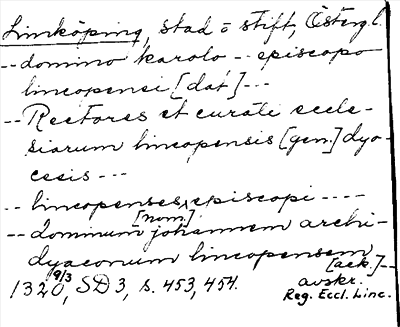 Linköping, stad o stift, Österg. l.
-- domino karolo -- episcopo
lincopensi [dat] ---
-- Rectores et curati eccle-
siarum lincopensis [gen.] dyo-
cesis ---
-- lincopenses [nom.] episcopi ----
-- dominum johannem archi-
dyaconum lincopensem [ack.] --
1320 9/3, SD 3, s. 453, 454. avskr.
Reg. Eccl. Linc.